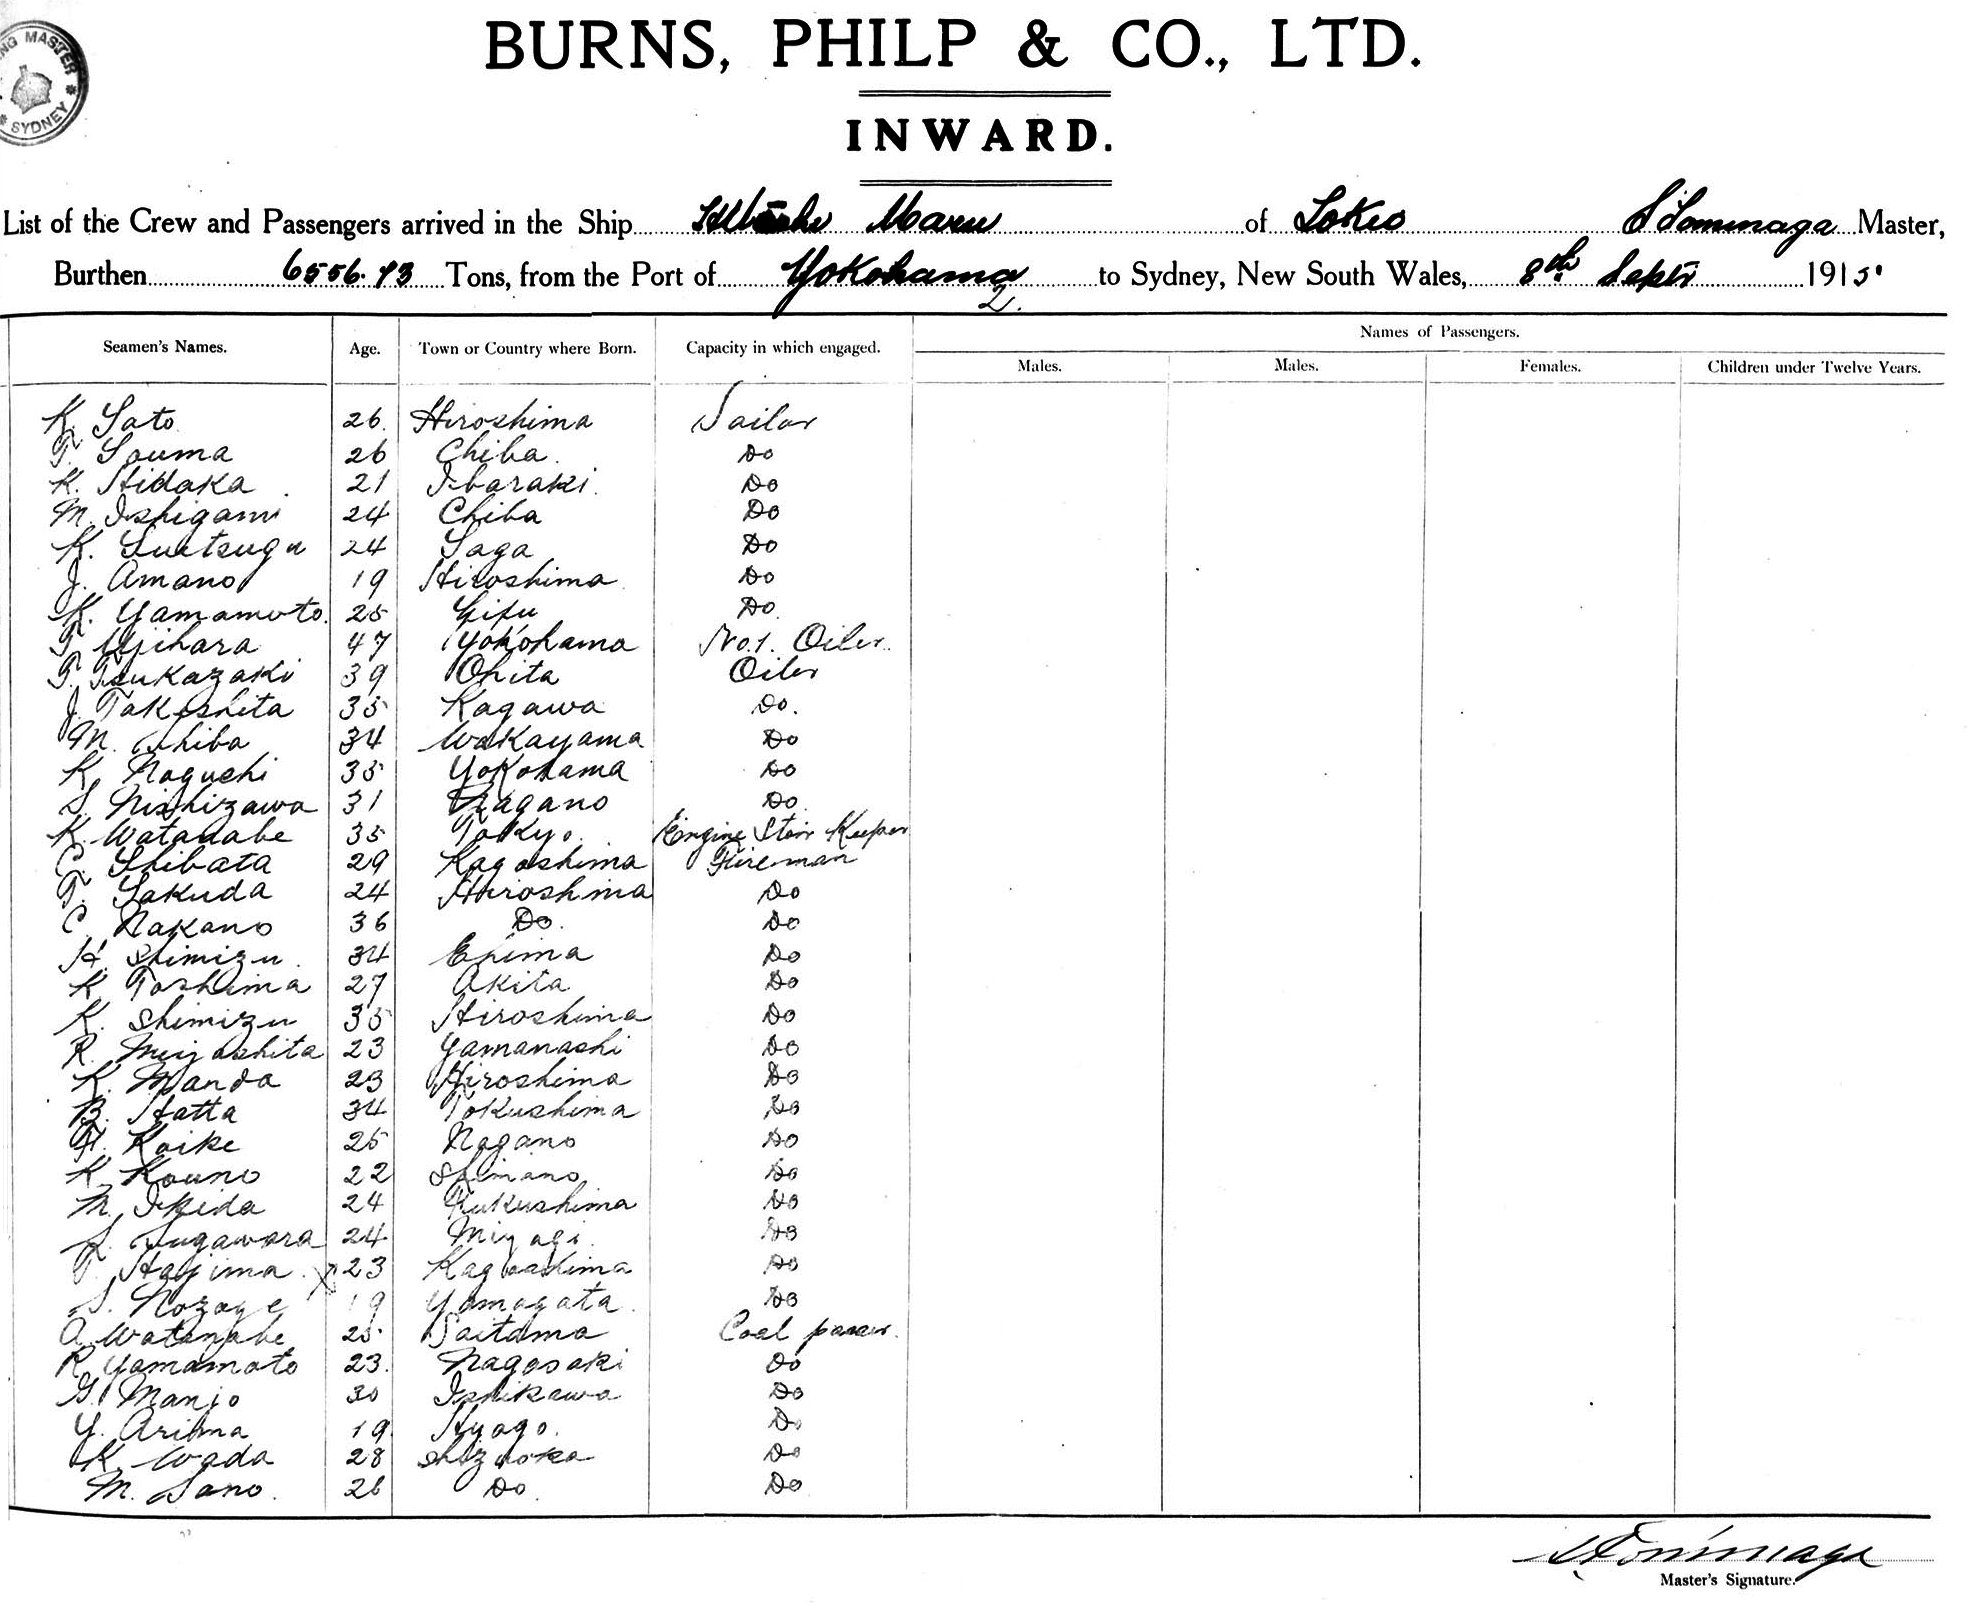 NG MASTER
* SYDNEY *
BURNS, PHILP & CO., LTD.
INWARD.
List of the Crew and Passengers arrived in the Ship Maru of Tokio S Tominaga Master,
Burthen 6556.73 Tons, from the Port of Yokohama to Sydney, New South Wales, 8th Septr 1915
2.
Names of Passengers.
Seamen's Names. Age. Town or Country where Born. Capacity in which engaged. Males. Males. Females. Children under Twelve Years.
K. Sato 26. Hiroshima Sailor
T. Souma 26 Chiba. Do
K. Hidaka 21 Ibaraki. Do
M. Ishigami 24 Chiba Do
K. Suetsugu 24 Saga Do
J. Amano 19 Hiroshima Do
K. Yamamoto. 25 Gifu Do.
T. Ujihara 47 Yokohama No.1. Oiler.
T. Tsukazaki 39 Ohita Oiler
J. Takeshita 35 Kagawa Do.
M. Chiba 34 Wakayama Do
K. Noguchi 35 Yokohama Do
S. Nishizawa 31 Nagano Do
K. Watadabe 35 Tokyo. Engine Stoir Keeper
C. Shibata 29 Kagoshima Fireman
T. Sakuda 24 Hiroshima Do
C. Nakano 36 Do. Do
H. Shimizu. 34 Ehima Do
K Toshima 27 Akita Do
K. Shimizu 35 Hiroshima Do
R. Miyashita 23 Yamanashi Do
K. Manda 23 Hiroshima Do
B. Hatta 34 Tokushima Do
H. Koike 25 Nagano Do
K. Kouno 22 Shimano Do
M. Ikida 24 Fukushima Do
S. Sugawara 24 Miyagi. Do
T. Hajima. X 23 Kagoashima Do
S. Nozoye 19 Yamagata. Do
A. Watanabe 25. Saitama Coal passer.
R. Yamamoto 23. Nagasaki Do
G. Manjo 30 Ishikawa Do
Y. Arima 19. Hyogo. Do
K. Wada 28 Shizuoka Do
M. Sano. 26 Do. Do
S. Tominaga
Master's Signature.